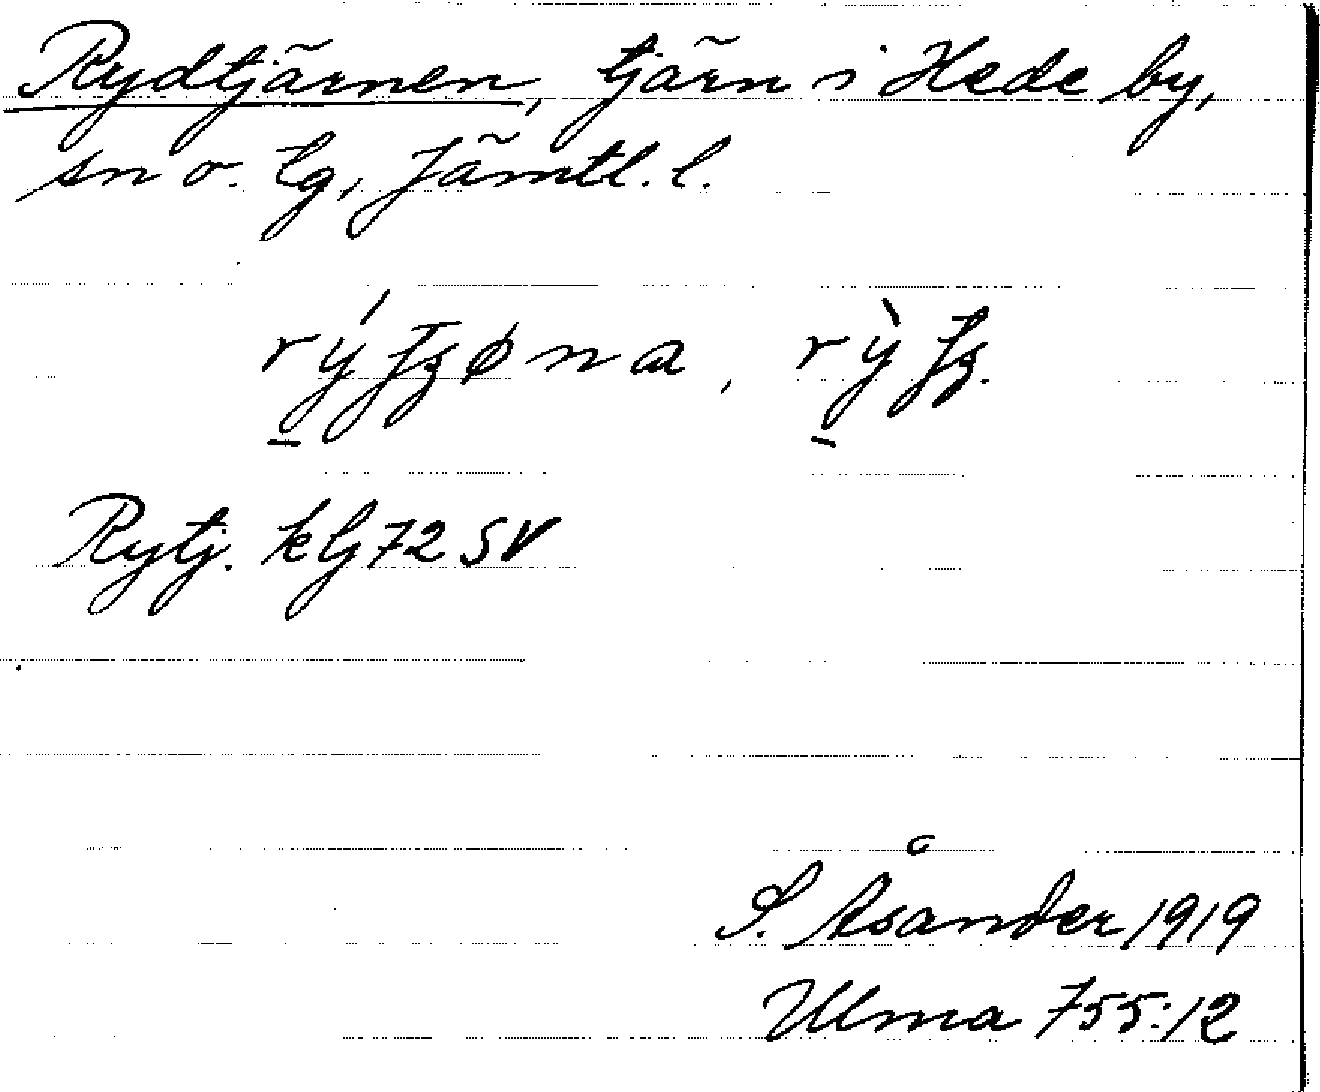 Rydtjärnen, tjärn i Hede by,
sn o. tg, Jämtl. l.
Rytj. ktj 72 SV
S. Åsander 1919
Ulma 755:12